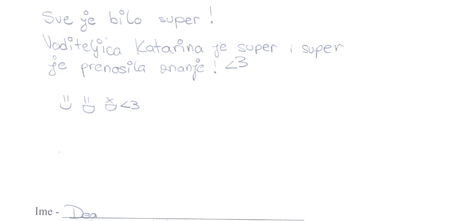 Sve je bilo super!
Voditeljica Katarina je super i super
je prenosila znanje! <3
<3
Ime - Dea